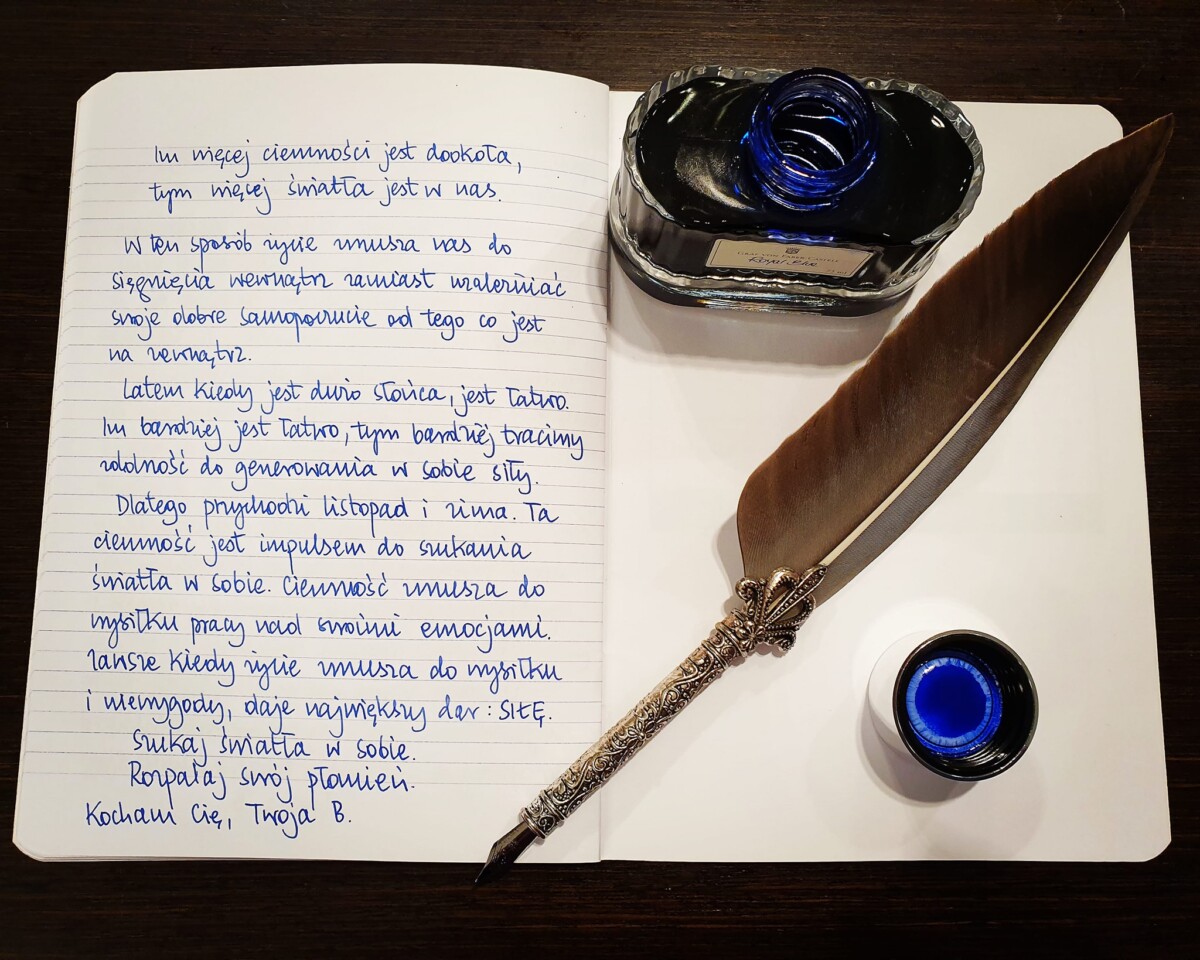 Im więcej ciemności jest dookoła,
tym więcej światła jest w nas.
W ten sposób życie zmusza nas do
sięgnięcia wewnątrz zamiast uzależniać
swoje dobre samopoczucie od tego co jest
na zewnątrz.
Latem kiedy jest dużo słońca, jest łatwo.
Im bardziej jest łatwo, tym bardziej tracimy
zdolność do generowania w sobie siły.
Dlatego przychodzi listopad i zima. Ta
ciemność jest impulsem do szukania
światła w sobie. Ciemność zmusza do
wysiłku pracy nad swoimi emocjami.
Zawsze kiedy życie zmusza do wysiłku
i niewygody, daje największy dar: SIŁĘ.
Szukaj światła w sobie.
Rozpalaj swój płomień.
Kocham Cię, Twoja B.
GRAF VON FABER-CASTELL
Royal Blue